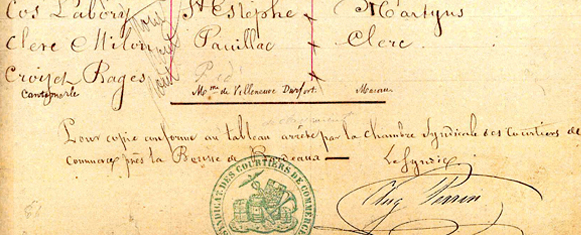 Cos Labory St Estèphe St Martyns
Clerc Milon Pauillac Clerc
Croizet Bages
Cantemerle Mme de Villeneuve Durfort Macau
Pour copie conforme au tableau arrêté par la chambre syndicale des Courtiers de
Commerce près la Bourse de Bordeaux — Le Syndic
SYNDICAT DES COURTIERS DE COMMERCE